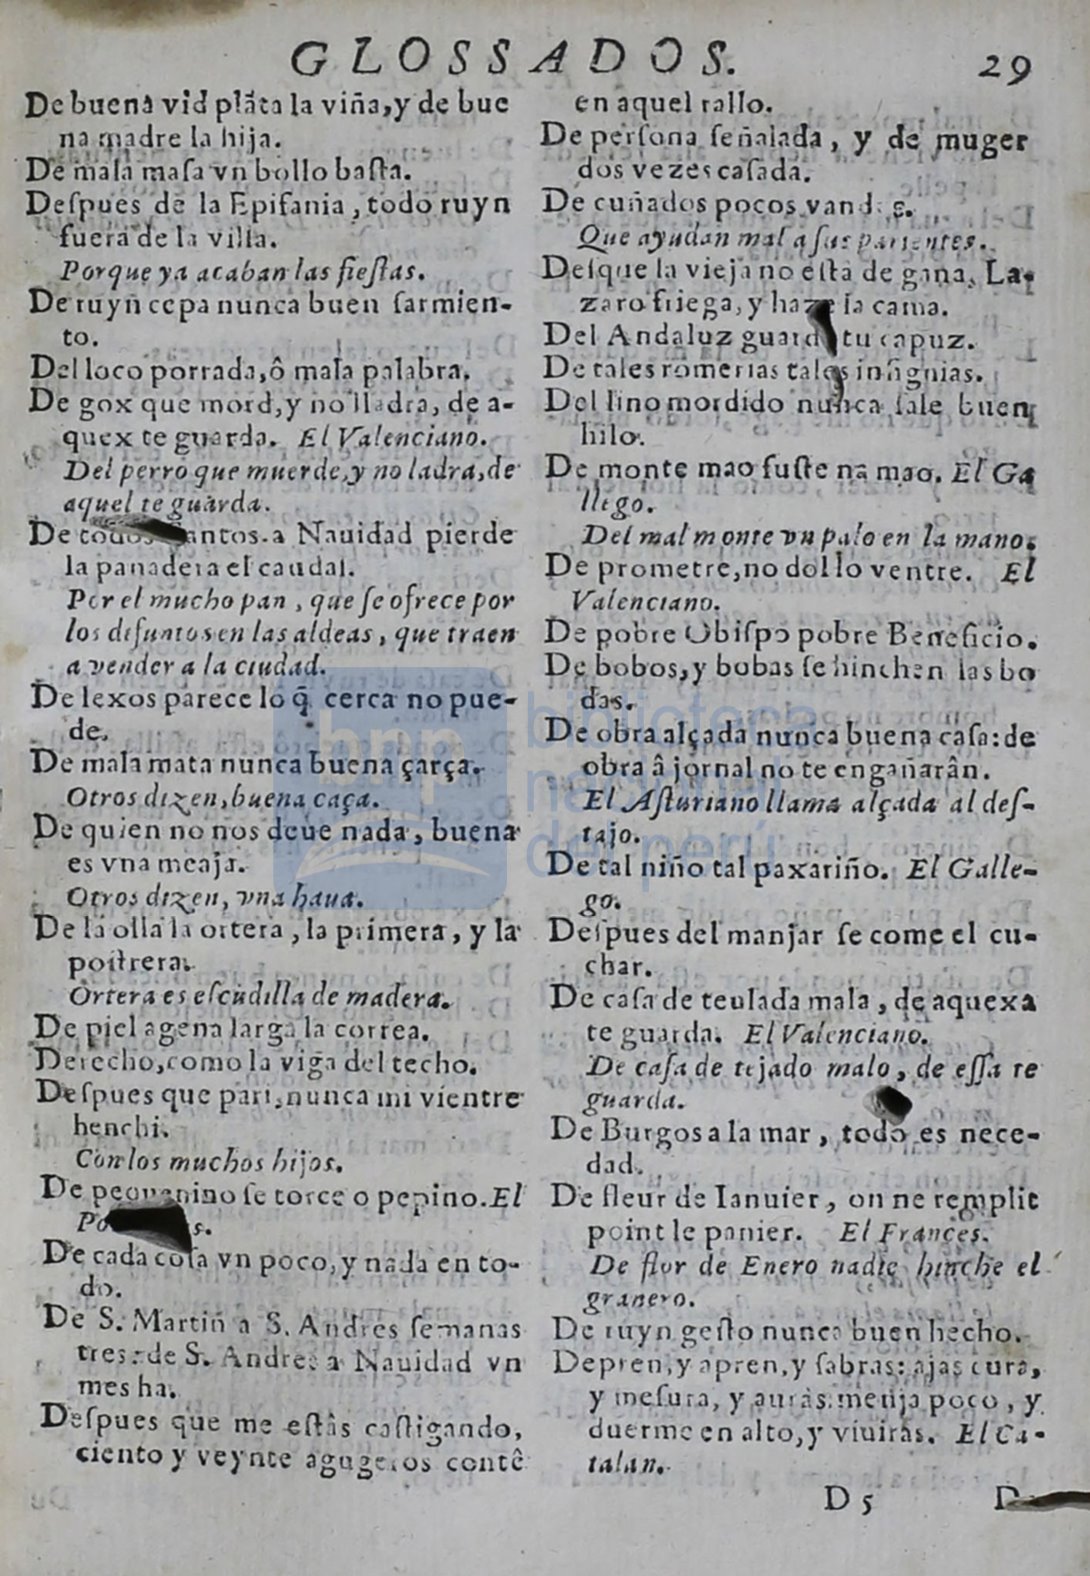 GLOSSADOS. 29
De buena vid plãta la viña,y de bue
na madre la hija.
De mala maſa vn bollo baſta.
Deſpues de la Epifania , todo ruyn
fuera de la villa.
Porque ya acaban las fieſtas.
De ruyn cepa nunca buen ſarmien-
to.
Del loco porrada,ô mala palabra.
De gox que mord,y no lladra, de a-
quex te guarda. El Valenciano.
Del perro que muerde,y no ladra,de
aquel te guarda.
De todos antos a Nauidad pierde
la panadera el caudal.
Por el mucho pan , que ſe ofrece por
los difuntos en las aldeas , que traen
a vender a la ciudad.
De lexos parece lo q̃ cerca no pue-
de.
De mala mata nunca buena çarça.
Otros dizen,buena caça.
De quien no nos deue nada , buena
es vna meaja.
Otros dizen, vna haua.
De la olla la ortera , la primera , y la
poſtrera.
Ortera es eſcudilla de madera.
De piel agena larga la correa.
Derecho,como la viga del techo.
Deſpues que pari,nunca mi vientre
henchi.
Con los muchos hijos.
De pequenino ſe torce o pepino. El
De cada coſa vn poco,y nada en to-
do.
De S. Martin a S. Andres ſemanas
tres: de S. Andres a Nauidad vn
mes ha.
Deſpues que me eſtâs caſtigando,
ciento y veynte agugeros contê
en aquel rallo.
De perſona ſeñalada , y de muger
dos vezes caſada.
De cuñados pocos
Que ayudan mal a ſus parientes.
Deſque la vieja no eſtâ de gana, La-
zaro friega, y haze la cama.
Del Andaluz guarda tu capuz.
De tales romerias tales inſignias.
Del lino mordido nunca ſale buen
hilo.
De monte mao fuſte na mao. El Ga
llego.
Del mal monte vn palo en la mano.
De prometre,no dol lo ventre. El
Valenciano.
De pobre Obiſpo pobre Beneficio.
De bobos,y bobas ſe hinchen las bo
das.
De obra alçada nunca buena caſa: de
obra â jornal no te engañarân.
El Aſturiano llama alçada al deſ-
tajo.
De tal niño tal paxariño. El Galle-
go.
Deſpues del manjar ſe come el cu-
char.
De caſa de teulada mala , de aquexa
te guarda. El Valenciano.
De caſa de tejado malo , de eſſa te
guarda.
De Burgos a la mar , todo es nece-
dad.
De fleur de Ianuier , on ne remplit
point le panier. El Frances.
De flor de Enero nadie hinche el
granero.
De ruyn geſto nunca buen hecho.
Depren,y apren,y ſabras: ajas cura,
y meſura, y auràs: menja poco , y
duerme en alto,y viuiràs. El Ca-
talan.
D 5